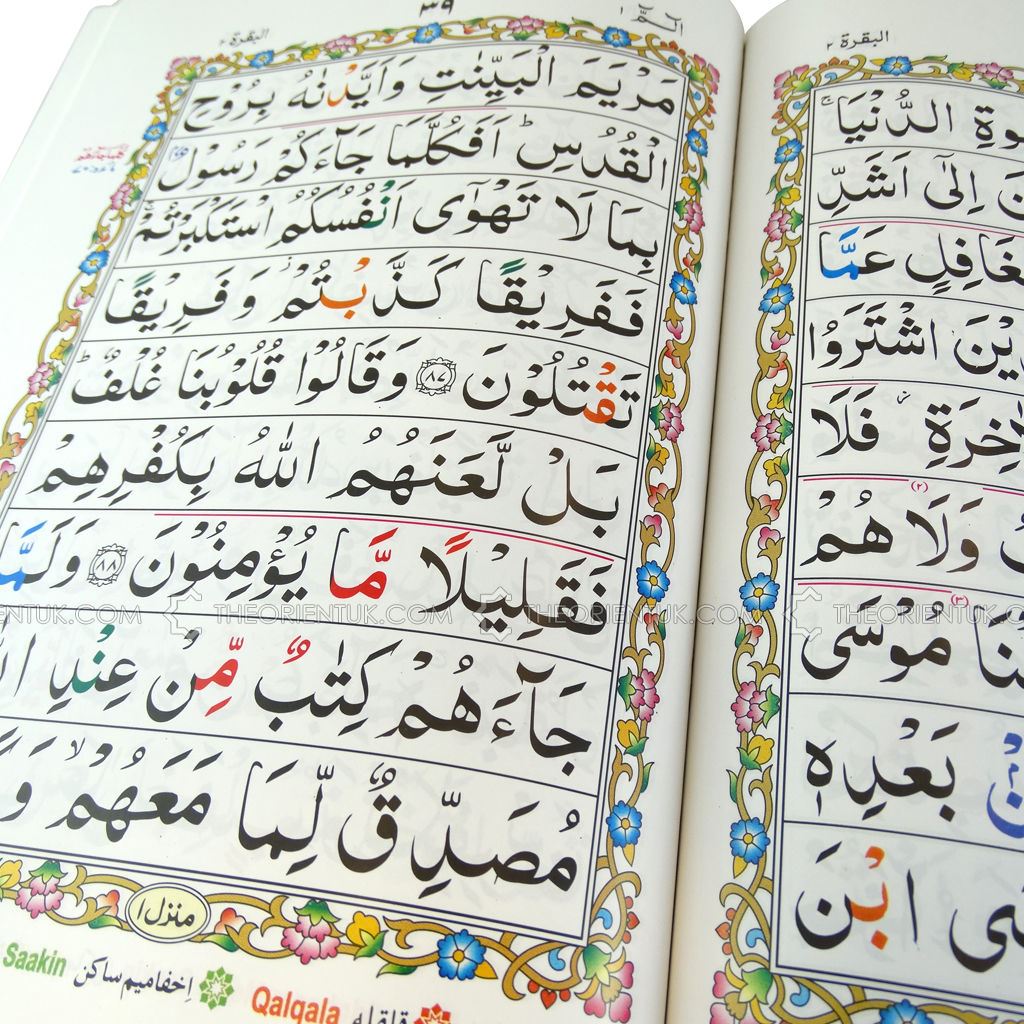 البقرة ٢
الٓمّٓ ١
٣٩
البقرة ٢
مَرْيَمَ الْبَيِّنٰتِ وَاَيَّدْنٰهُ بِرُوْحِ
الْقُدُسِ ؕ اَفَكُلَّمَا جَآءَكُمْ رَسُوْلٌۢ
بِمَا لَا تَهْوٰٓى اَنْفُسُكُمُ اسْتَكْبَرْتُمْ ۚ
فَفَرِيْقًا كَذَّبْتُمْ ؗ وَ فَرِيْقًا
تَقْتُلُوْنَ ۝۸۷ وَقَالُوْا قُلُوْبُنَا غُلْفٌ ؕ
بَلْ لَّعَنَهُمُ اللّٰهُ بِكُفْرِهِمْ
فَقَلِيْلًا مَّا يُؤْمِنُوْنَ ۝۸۸ وَلَمَّا
جَآءَهُمْ كِتٰبٌ مِّنْ عِنْدِ
مُصَدِّقٌ لِّمَا مَعَهُمْ ۙ وَ
منزل ١
Saakin اِخفا میم ساکن
Qalqala قلقله
وةِ الدُّنْيَا ۚ
نَ اِلٰٓى اَشَدِّ
بِغَافِلٍ عَمَّا
يْنَ اشْتَرَوُا
اٰخِرَةِ ؗ فَلَا
وَلَا هُمْ
نَا مُوْسَى
نْۢ بَعْدِهٖ
ى ابْنَ
THEORIENTUK.COM THEORIENTUK.COM THEORIENTUK.COM THEORIENTUK.COM